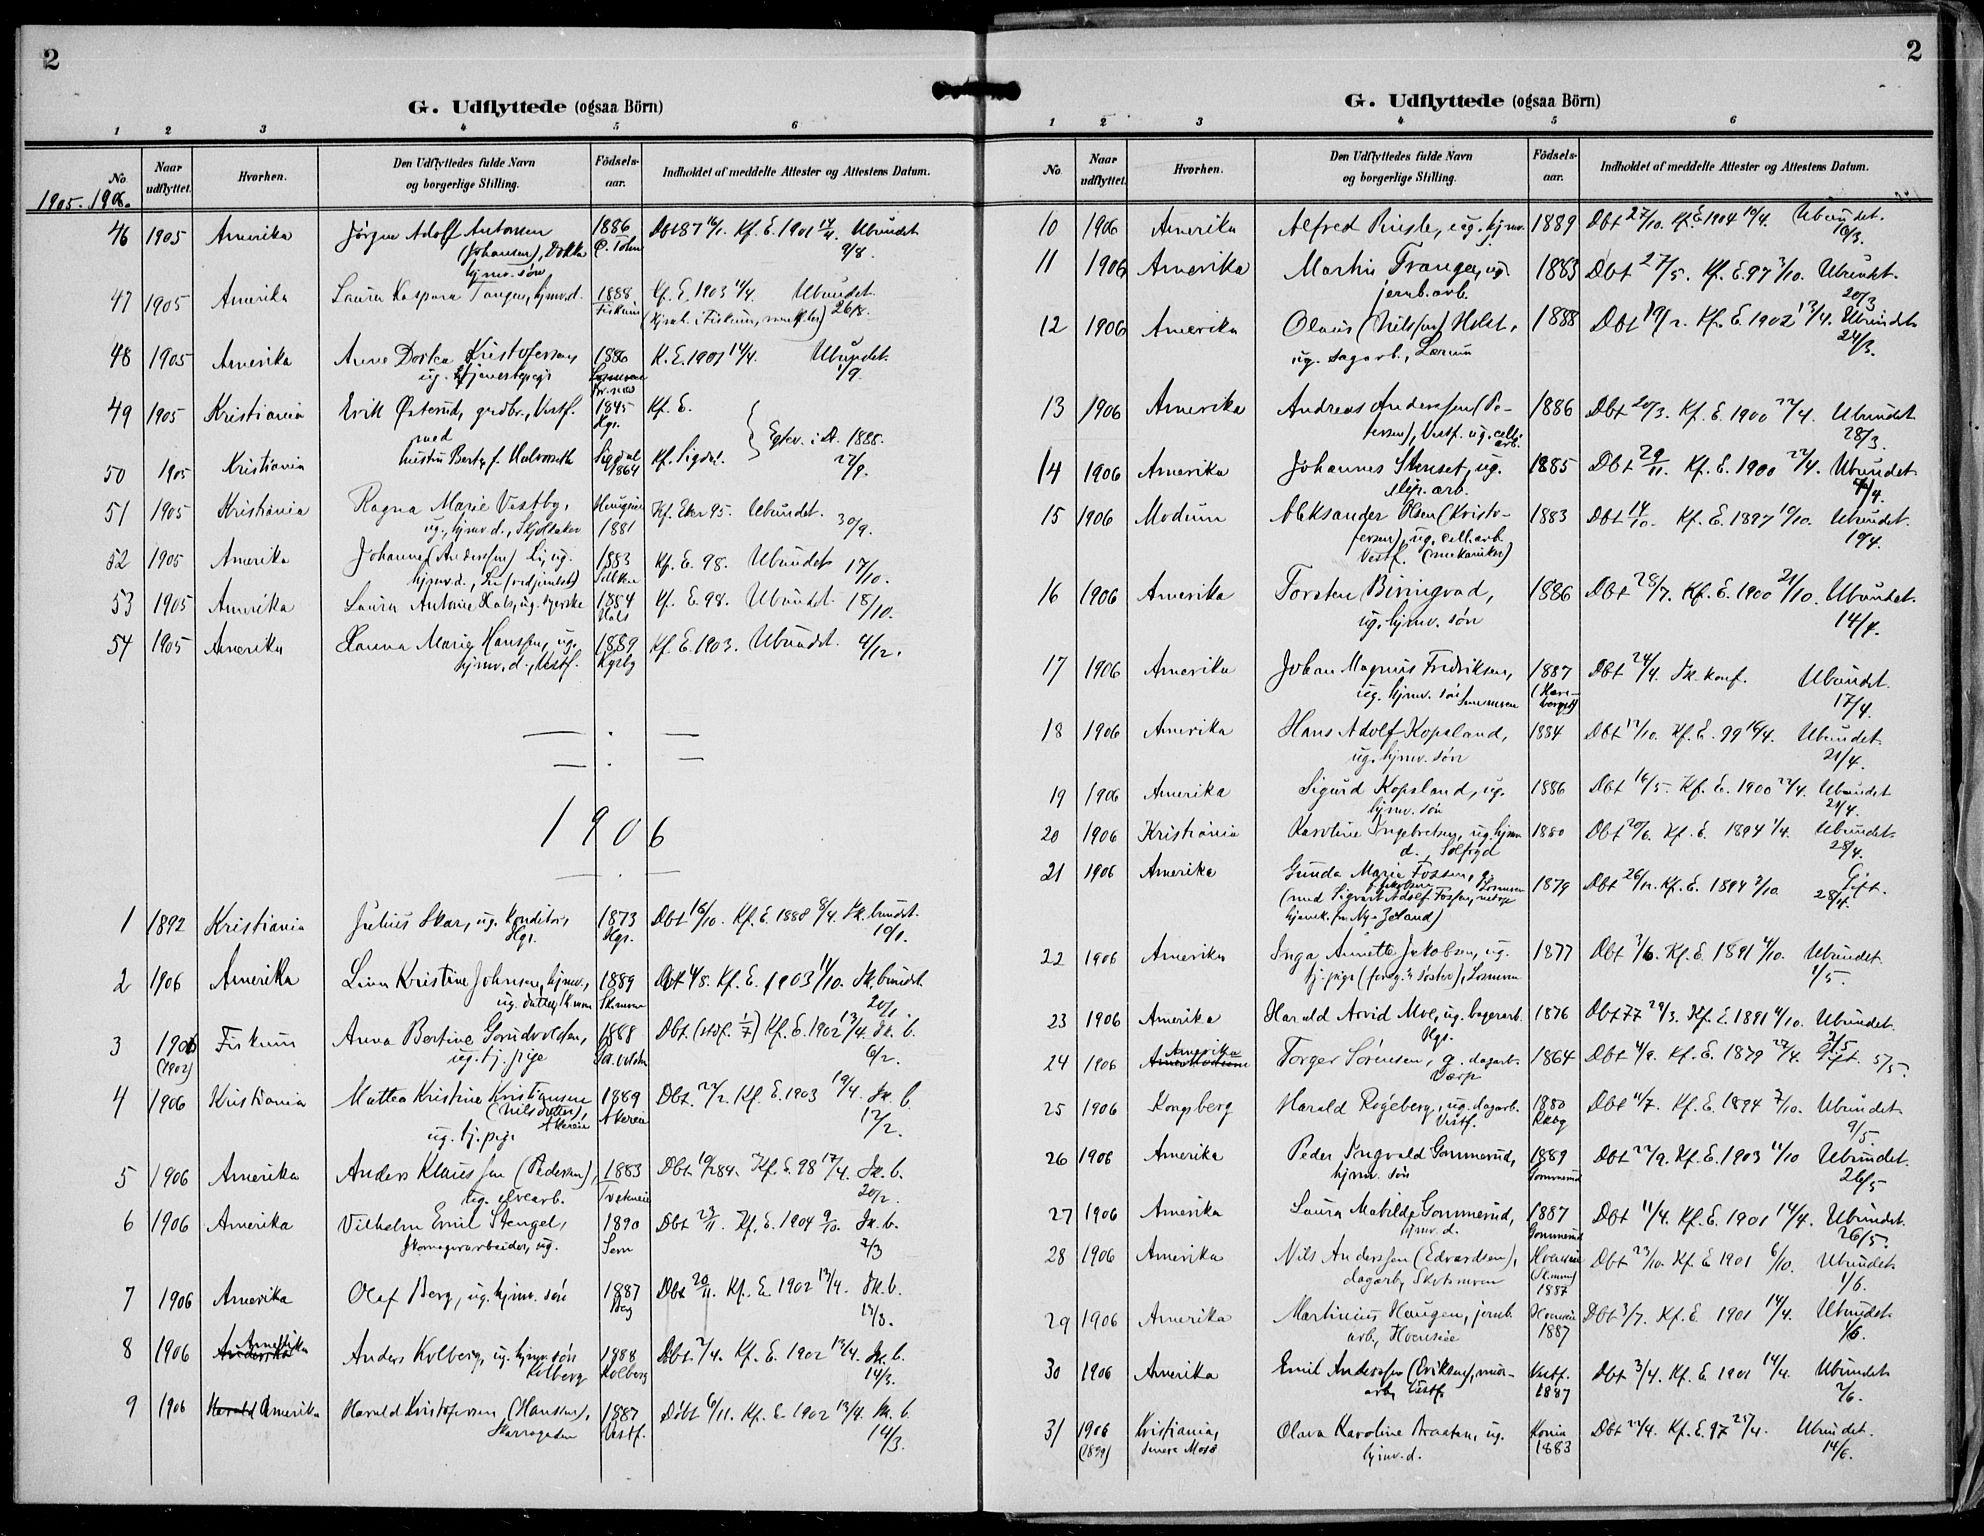 2
G. Udflyttede (ogsaa Börn)
1 2 3 4 5 6
No Naar udflyttet. Hvorhen. Den Udflyttedes fulde Navn og borgerlige Stilling. Fødsels-aar. Indholdet af meddelte Attester og Attestens Datum.
1905-1906.
46 1905 Amerika Jörgen Adolf Antonsen 1886 Kf. E. 1901 Ubundet
(Johansen), Dokka 9/8.
hjmv. søn
47 1905 Amerika Laura Kaspara Tangen, hjmv. d. 1888 Kf. E. 1903 Ubundet
Fiskum 26/8.
48 1905 Amerika Anne Dortea Kristofersen 1886 K. E. 1901 14/4. Ubundet
ug. tjenestepige 1/9.
49 1905 Kristiania Erik Østerud, grdbr., Vestf. 1845 Kf. E.
med Hgs. Egtev. i D. 1888.
50 1905 Kristiania hustru Berte f. Halvorseth Sigdal 1864 Kf. Sigdal. 27/9.
51 1905 Kristiania Ragna Marie Vestby, Kf. Eker 95. Ubundet.
ug. hjmv. d., Skjolsaker 1881 30/9.
52 1905 Amerika Johanne (Anderssen) Li, ug. 1883 Kf. E. 98. Ubundet 17/10.
hjmv. d., Li
53 1905 Amerika Laura Antonie Hals, ug. syerske 1884 Kf. E. 98. Ubundet. 18/10.
Hals
54 1905 Amerika Hanna Marie Hanssen, ug. 1889 Kf. E. 1903. Ubundet. 4/12.
hjmv. d., Vestf.
1906
1 1892 Kristiania Julius Skar, ug. konditor, 1873 Dbt 16/10. Kf. E. 1888 8/4. Sk. bundet.
Hgs. Hgs. 10/1.
2 1906 Amerika Lina Kristine Johnsen, hjmv., 1889 Dbt 4/8. Kf. E. 1903 11/10. Sk. bundet.
ug. datter, 20/1.
3 1906 Fiskum Anna Bertine Grundvolden, 1888 Dbt (stdf. 1/7) Kf. E. 1902 13/4. Sk. b.
(1902) ug. tj. pige 6/2.
4 1906 Kristiania Mattea Kristine Kristiansen 1889 Dbt. 22/2. Kf. E. 1903 19/4. Sk. b.
(Nilsdatter), Akereie Akereie 12/2.
ug. tj. pige
5 1906 Amerika Anders Klaussen (Pedersen), 1883 Kf. E. 98 17/4. Sk. b.
ug. elvearb. 20/2.
6 1906 Amerika Vilhelm Emil Stengel, 1890 Dbt 23/11. Kf. E. 1904 9/10. Sk. b.
Skomagerarbeider, ug. Sem 2/3
7 1906 Amerika Olaf Berg, ug. hjmv. søn 1887 Dbt 20/11. Kf. E. 1902 13/4. Sk. b.
Berg 12/3.
8 1906 Amerika Anders Kolberg, ug. hjmv. søn 1888 Dbt. 2/4. Kf. E. 1902 13/4. Sk. b.
Kolberg Kolberg 14/3.
9 1906 Harald Amerika Harald Kristofersen (Hanssen), 1887 Døbt 6/11. Kf. E. 1902 13/4. Sk. b.
Vestf. 14/3.
2
G. Udflyttede (ogsaa Börn)
1 2 3 4 5 6
No Naar udflyttet. Hvorhen. Den Udflyttedes fulde Navn og borgerlige Stilling. Fødsels-aar. Indholdet af meddelte Attester og Attestens Datum.
10 1906 Amerika Alfred ug. hjmv. 1889 Dbt 27/10. Kf. E. 1904 10/4. Ubundet.
10/3.
11 1906 Amerika Martin Tranger, ug. 1883 Dbt 27/5. Kf. E. 97 3/10. Ubundet
jernb. arb. 20/3
12 1906 Amerika Olaus (Nilssen) Holst, 1888 Dbt 19/2. Kf. E. 1902 13/4. Ubundet
ug. sagarb., 24/3.
13 1906 Amerika Andreas Anderssen (Pe- 1886 Dbt 20/3. Kf. E. 1900 22/4. Ubundet
tersen), Vestf. ug. cell. arb. 28/3.
14 1906 Amerika Johannes Stenset, ug. 1885 Dbt 29/11. Kf. E. 1900 22/4. Ubundet
slip. arb.
15 1906 Modum Aleksander Olsen (Kristo- 1883 Dbt 14/10. Kf. E. 1897 10/10. Ubundet
fersen), ug. cell. arb. 10/4.
Vestf. (mekaniker)
16 1906 Amerika Torsten Biringvad, 1886 Dbt 28/7. Kf. E. 1900 21/10. Ubundet.
ug. hjmv. søn 14/4.
17 1906 Amerika Johan Magnus Fredriksen, 1887 Dbt 24/4. Sk. konf. Ubundet.
ug. hjmv. søn 17/4.
18 1906 Amerika Hans Adolf Kopsland, 1884 Dbt 12/10. Kf. E. 99 16/4. Ubundet.
ug. hjmv. søn 21/4.
19 1906 Amerika Sigurd Kopsland, ug. 1886 Dbt 16/5. Kf. E. 1900 22/4. Ubundet
hjmv. søn 21/4.
20 1906 Kristiania Karoline Ingebretsen, ug. hjmv. 1880 Dbt 20/6. Kf. E. 1894 1/4. Ubundet
d., Solfryd 28/4.
21 1906 Amerika Gunda Marie Fossen, g. 1879 Dbt 26/12. Kf. E. 1894 Gift.
(med Sigvart Adolf Fossen, netop 28/4.
hjemk. fra Ny-Zeland)
22 1906 Amerika Inga Anette Jakobsen, ug. 1877 Dbt 3/6. Kf. E. 1891 4/10. Ubundet.
tj. pige (foreg.s søster), 1/5.
23 1906 Amerika Harald Arvid Moe, ug. bagerarb. 1876 Kf. E. 1891 4/10. Ubundet.
Hgs. 2/5
24 1906 Amerika Torger Sørensen, g. dagarb. 1864 Dbt 4/9. Kf. E. 1879 Gift. 5/5.
Varp
25 1906 Kongsberg Harald Rogeberg, ug. dagarb. 1880 Dbt 11/7. Kf. E. 1894 7/10. Ubundet.
Vestf. 9/5.
26 1906 Amerika Peder Ingvald Gommerud, 1889 Dbt 22/9. Kf. E. 1903 11/10 Ubundet.
hjmv. søn Gommerud 26/5
27 1906 Amerika Laura Matilde Gommerud, 1887 Dbt 11/4. Kf. E. 1901 14/4. Ubundet.
hjmv. d. Gommerud 26/5.
28 1906 Amerika Nils Anderssen (Edvardsen), Hoenseie Dbt 23/10. Kf. E. 1901 6/10. Ubundet
dagarb, 1887 1/6.
29 1906 Amerika Martinius Haugen, jernb. Hoenseie Dbt 3/7. Kf. E. 1901 14/4. Ubundet
arb., Hoenseie 1887 1/6.
30 1906 Amerika Emil Anderssen (Eriksen), mur- Vestf. Dbt 3/4. Kf. E. 1901 14/4. Ubundet
arb, Vestf. 1887 2/6.
31 1906 Kristiania, Olava Karoline Braaten, ug. Dbt 22/4. Kf. E. 97 25/4. Ubundet.
(1899) senere Moss hjmv. d. 1883 14/6.